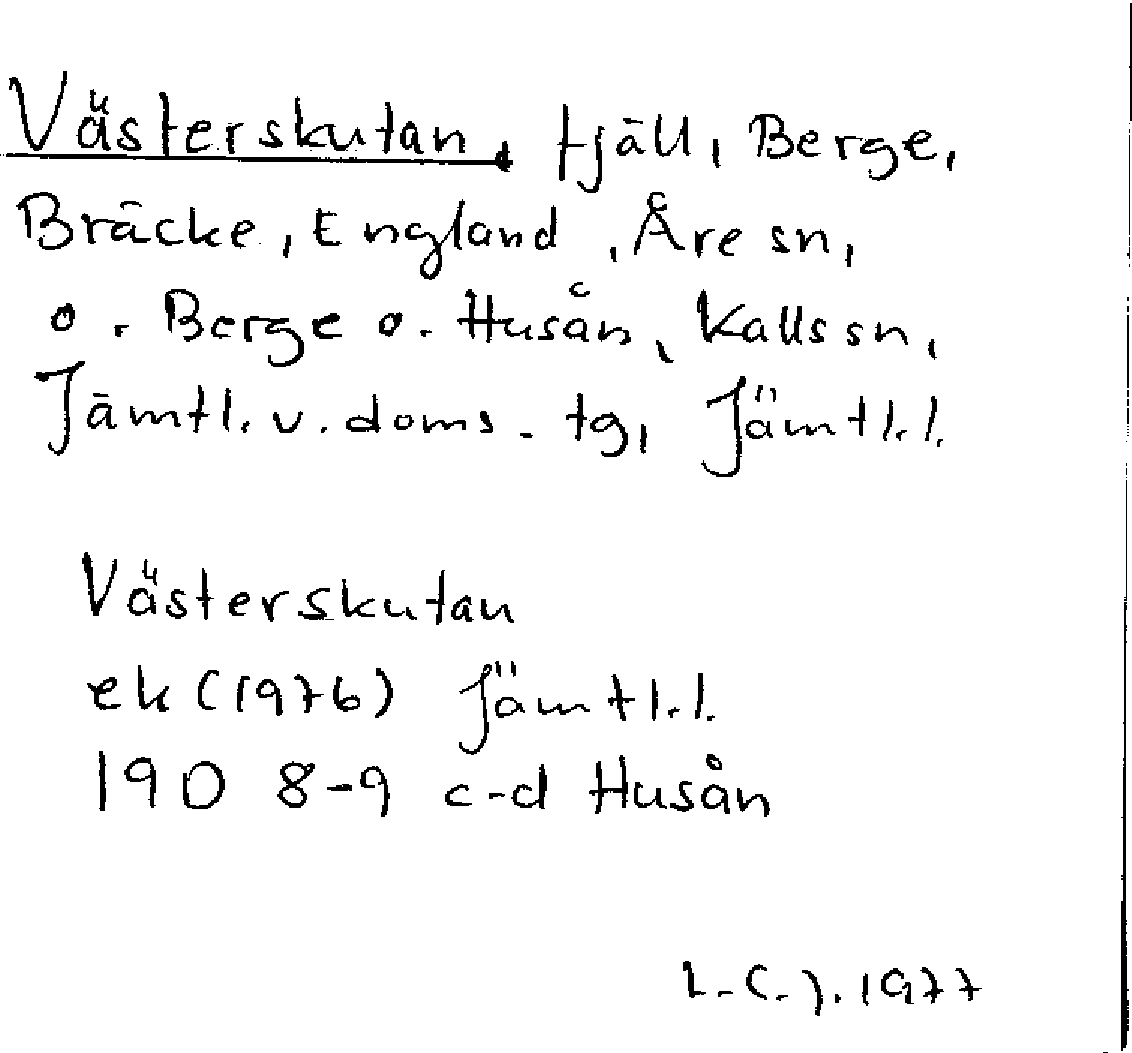 Västerskutan, fjäll, Berge,
Bräcke, England, Åre sn,
o. Berge o. Husån, Kalls sn,
Jämtl. v. doms. tg, Jämtl. l.
Västerskutan
ek (1976) Jämtl. l.
190 8-9 c-d Husån
L.C.J. 1977